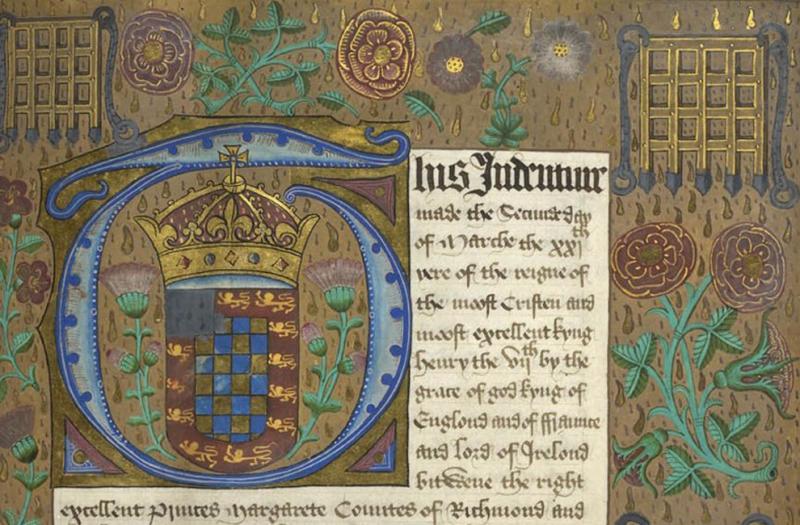 This Indenture
made the Secundeday
of Marche the xxi th
yere of the reigne of
the moost Cristen and
moost excellent kyng
henry the vii th by the
grace of god kyng of
Englond and of ffraunce
and lord of Irelond
bitwene the right
excellent Princes Margarete Comites of Richmond and